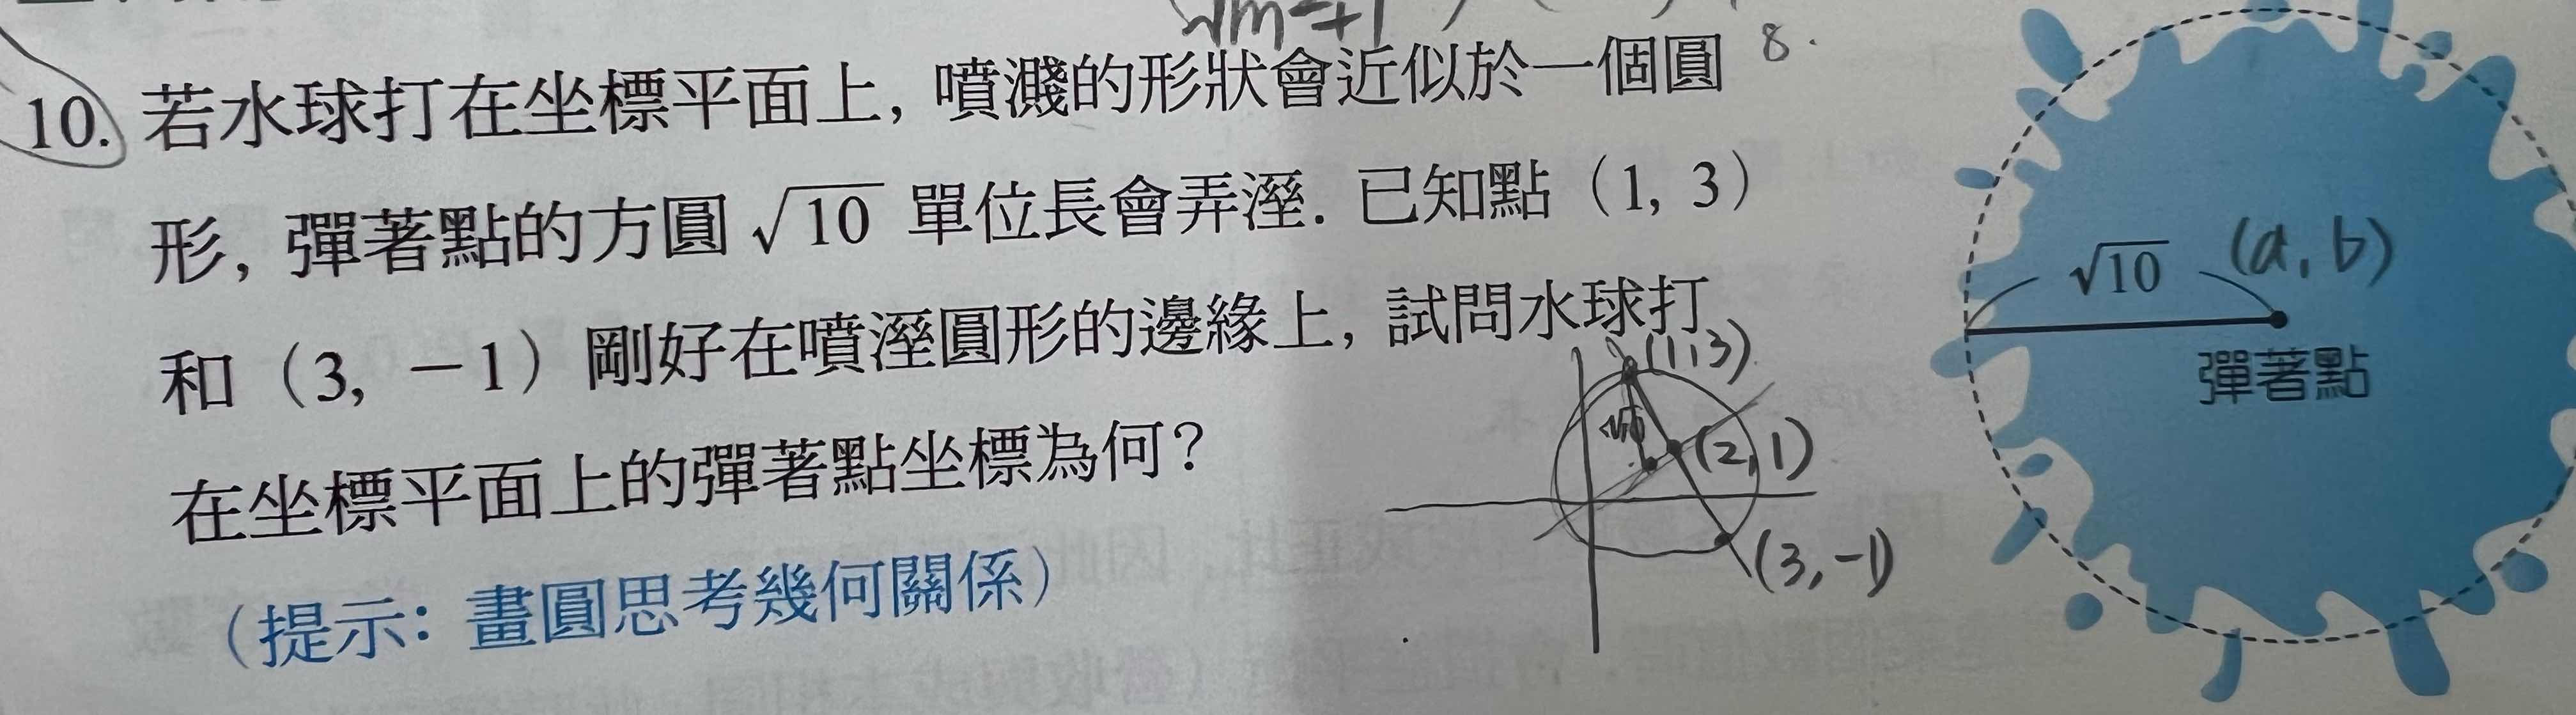 √m²+1
8.
10. 若水球打在坐標平面上, 噴濺的形狀會近似於一個圓
形, 彈著點的方圓 √10 單位長會弄溼. 已知點 (1, 3)
和 (3, －1) 剛好在噴溼圓形的邊緣上, 試問水球打
在坐標平面上的彈著點坐標為何?
(提示: 畫圓思考幾何關係)
(1,3)
√10
(2,1)
(3,-1)
√10
(a,b)
彈著點